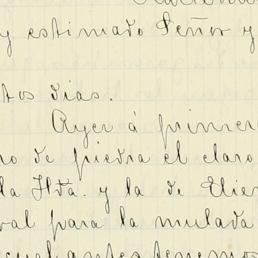 y estimado Señor y
tos dias.
Ayer á primer
no de piedra el claro
la Hda. y la de Elier
val para la mulada